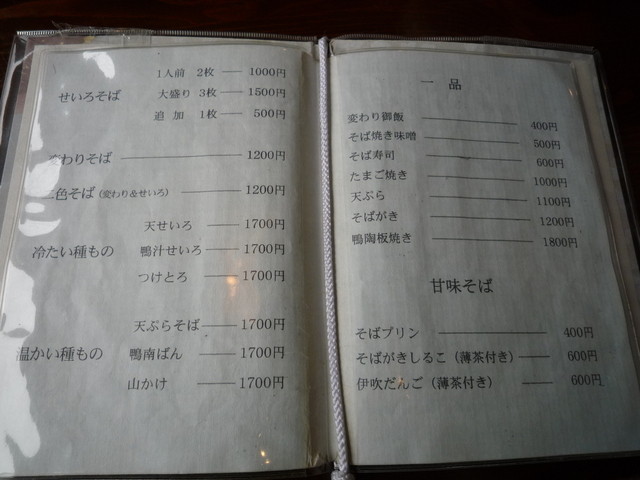 せいろそば 1人前 2枚 ―― 1000円
大盛り 3枚 ―― 1500円
追加 1枚 ―― 500円
変わりそば ―― 1200円
二色そば (変わり&せいろ) ―― 1200円
冷たい種もの
天せいろ ―― 1700円
鴨汁せいろ ―― 1700円
つけとろ ―― 1700円
温かい種もの
天ぷらそば ―― 1700円
鴨南ばん ―― 1700円
山かけ ―― 1700円
一品
変わり御飯 ―― 400円
そば焼き味噌 ―― 500円
そば寿司 ―― 600円
たまご焼き ―― 1000円
天ぷら ―― 1100円
そばがき ―― 1200円
鴨陶板焼き ―― 1800円
甘味そば
そばプリン ―― 400円
そばがきしるこ (薄茶付き) ―― 600円
伊吹だんご (薄茶付き) ―― 600円